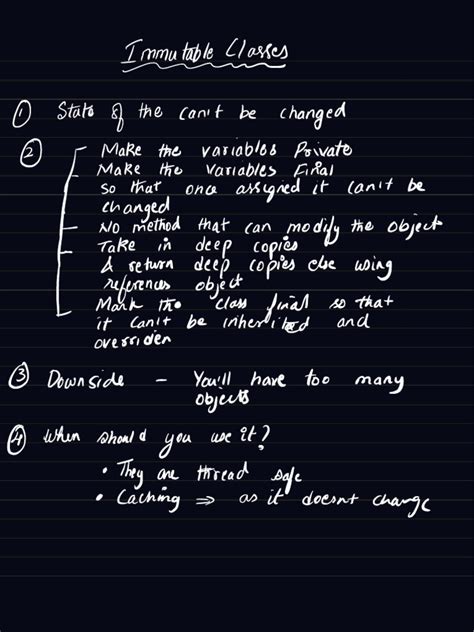 Immutable Classes
① State of the can't be changed
② - Make the variables Private
- Make the variables Final
so that once assigned it can't be
changed
- No method that can modify the object
- Take in deep copies
& return deep copies else using
references object
- Mark the class final so that
it can't be inherited and
overriden
③ Downside - You'll have too many
objects
④ When should you use it?
• They are thread safe
• Caching ⇒ as it doesnt change